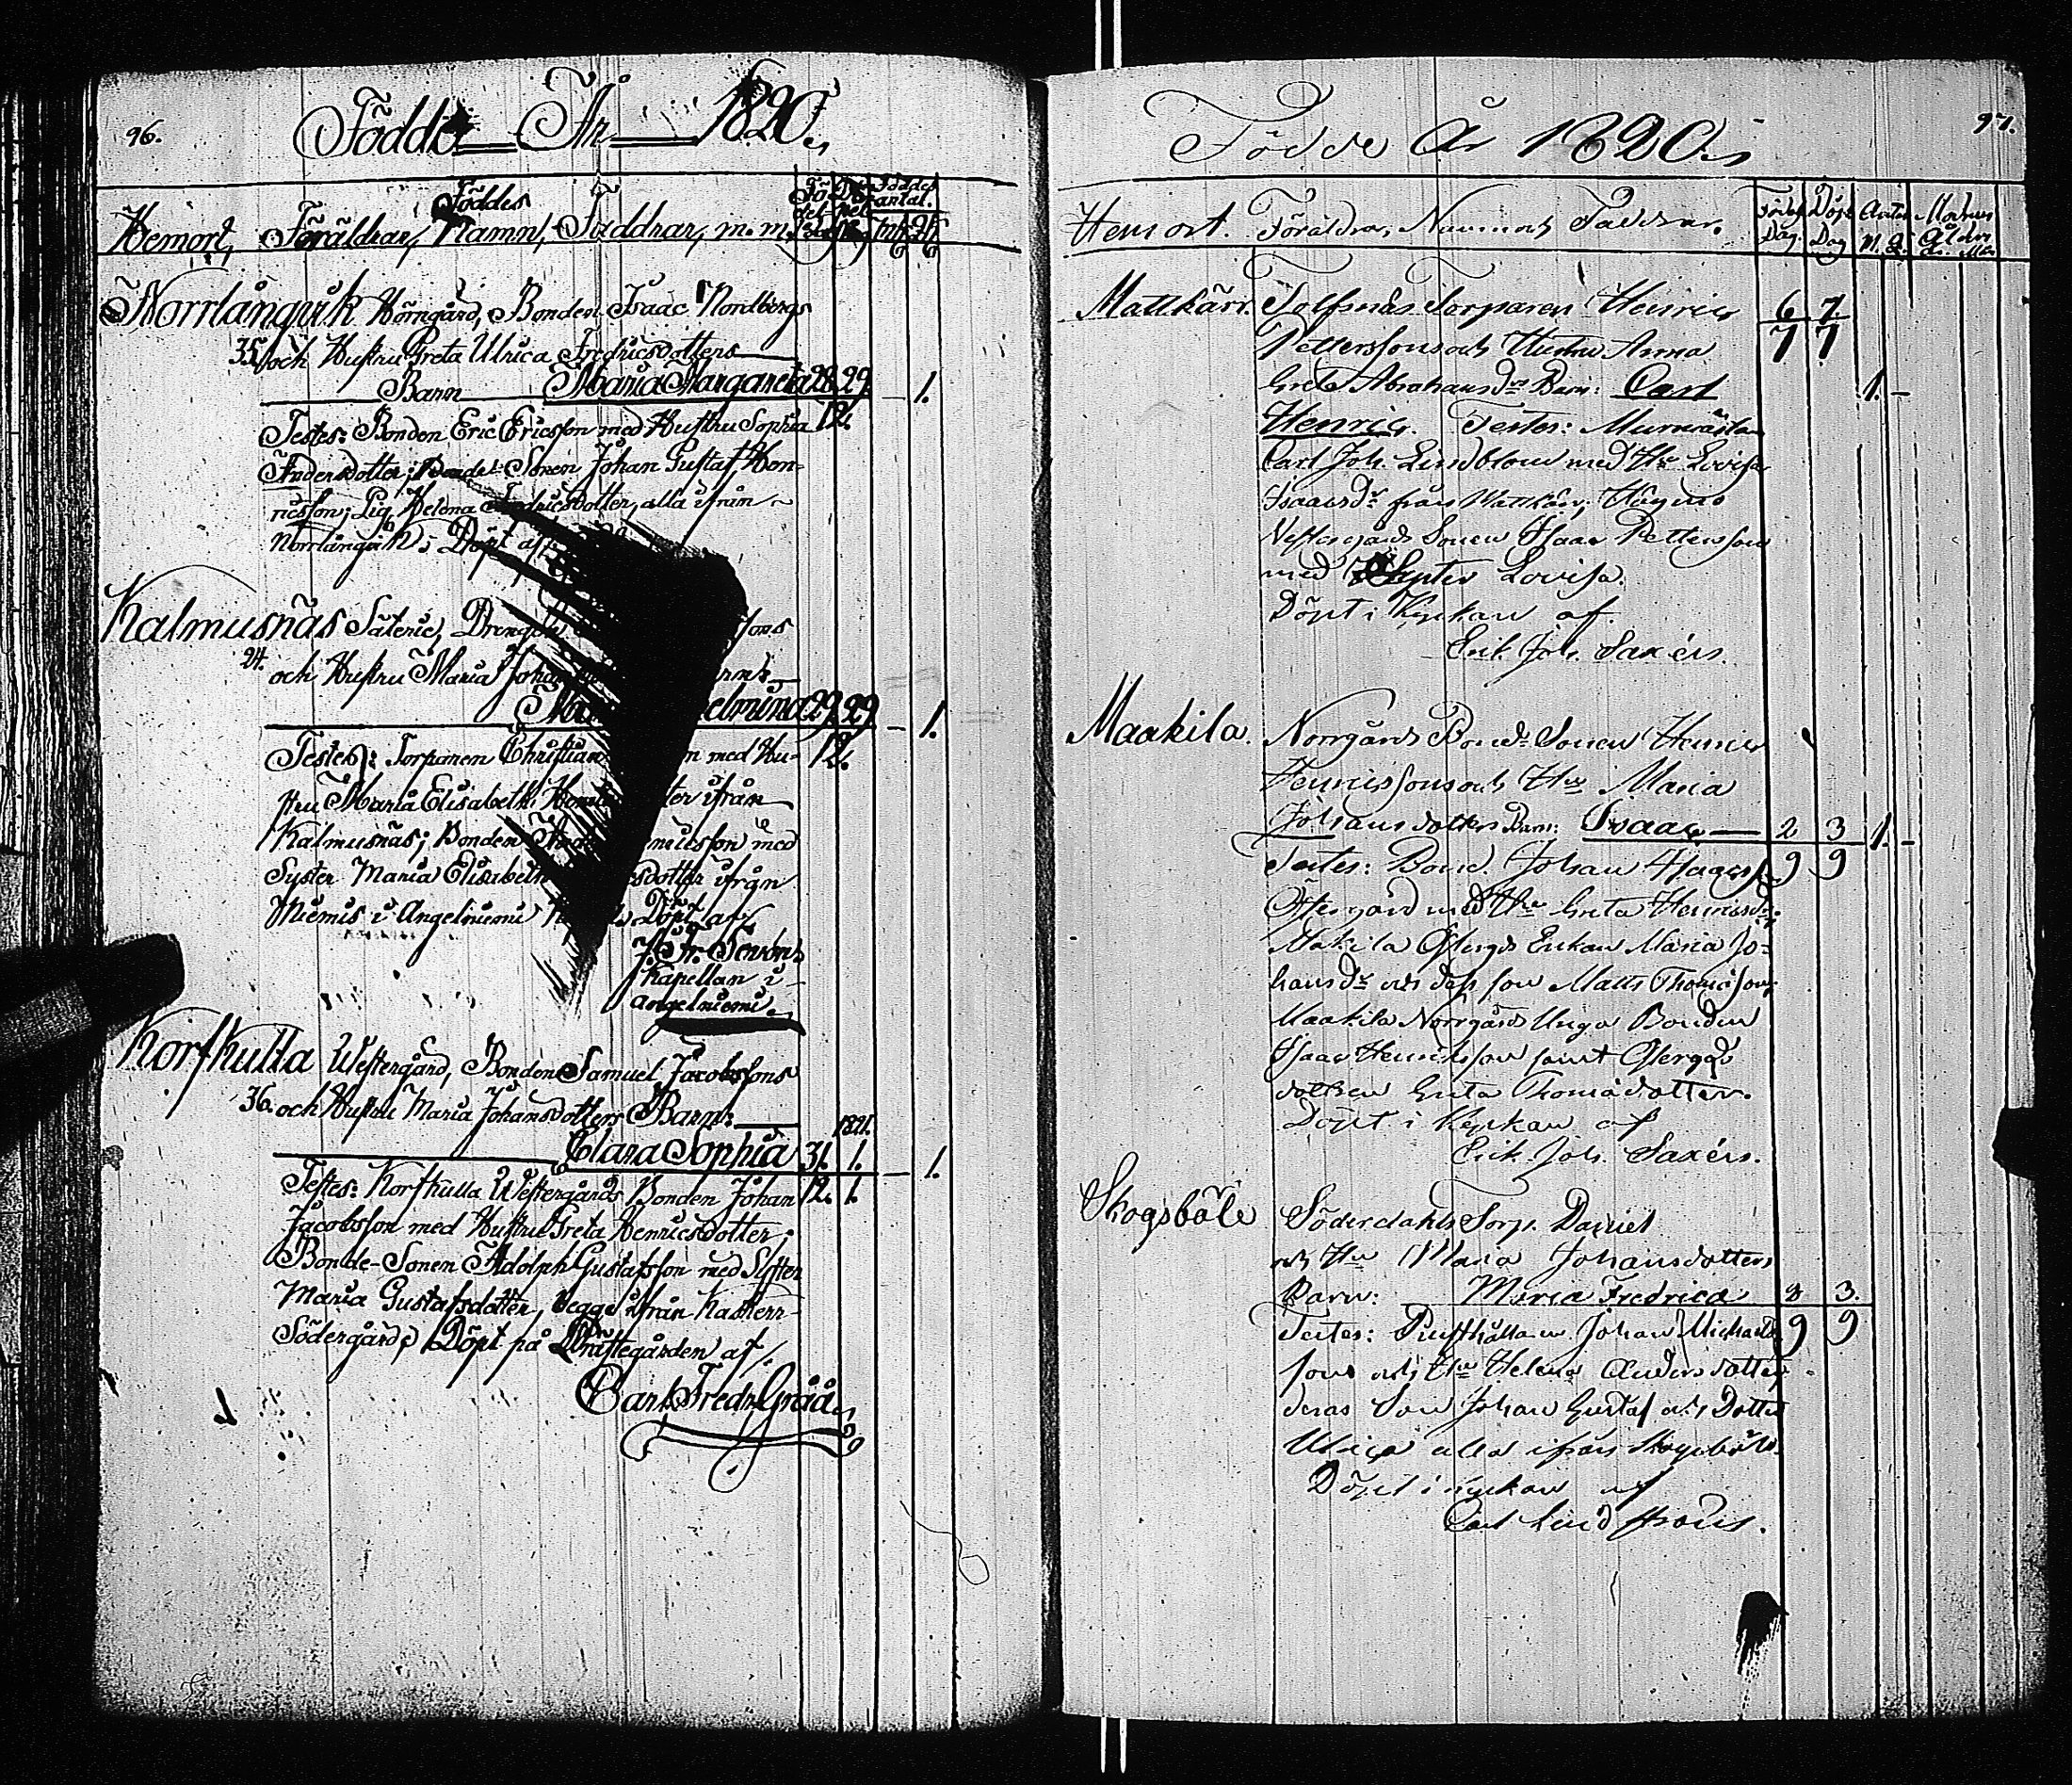 96.
Födda År 1820.
Hemort, Föräldrar, Föddes Namn, Faddrar, m. m.
Norrlångvik Hörngård, Bonden Isaac Nordbergs
35. och Hustru Greta Ulrica Fredricsdotters
Barn Maria Margareta 28. 29. – 1.
12.
Testes: Bonden Eric Ericsson med Hustru Sophia
Andersdotter; Bonde-Sonen Johan Gustaf Hen-
ricsson; Pig. Helena Fredricsdotter, alla ifrån
Norrlångvik; Döpt af
Kalmusnäs Säterie, Drengen sons
24. och Hustru Maria Joha
elmina 29. 29. – 1.
12.
Testes: Torparen Christian n med Hu-
stru Maria Elisabeth ter ifrån
Kalmusnäs; Bonden musson med
Syster Maria Elisabeth sdotter ifrån
Niemis i Angelniemi Döpt af
J. Fr. Sevon
Kapellan i
Angelniemi.
Korskulla Westergård, Bonden Samuel Jacobssons
36. och Hustru Maria Johansdotters Barn: 1821.
Clara Sophia 31. 1. – 1.
12. 1.
Testes: Korskulla Westergårds Bonden Johan
Jacobsson med Hustru Greta Henricsdotter;
Bonde-Sonen Adolph Gustafsson med Syster
Maria Gustafsdotter, begge ifrån
Södergård; Döpt på Prästegården af
Carl Fredr. Gråå
97.
Födde År 1820.
Hemort. Föräldrar, Namn och Faddrar. Födels Dag Döpt Dag Antal M. Q. Modrens Ålder
Mattkärr. Tolfsnäs Torparen Henric 6 7
Petterssons och Hustru Anna 7 7
Greta Abrahamsdr Barn: Carl 1. –
Henric. Testes: Murmästar
Carl Joh. Lindblom med Hu Lovisa
Isaacsdr från Mattkärr;
Westergårds Sonen Isaac Pettersson
med Syster Lovisa.
Döpt i Kyrkan af
Erik Joh. Saxén.
Maakila. Norrgårds Bonde Sonen Henric
Henricssons och Hu Maria
Johansdotters Barn: Isaac 2 3 1. –
Testes: Bond. Johan 9 9
Östergård med Hu Greta Henricsdr;
Makila Östergds Enkan Maria Jo-
hansdr och dess son Matts Thomasson;
Maakila Norrgårds Unga Bonden
Isaac Henricsson samt Östergds
dottren Greta Thomasdotter.
Döpt i Kyrkan af
Erik Joh. Saxén.
Skogsböle Söderdahls Torp. Daniel
och Hu Maria Johansdotters
Barn: Maria Fredrica 3 3.
Testes: Rusthållaren Johan Michels- 9 9
son och Hu Helena Andersdotter
deras Son Johan Gustaf och Dotter
Ulrica alla ifrån Skogsböle.
Döpt i Kyrkan af
Carl Lindströms.